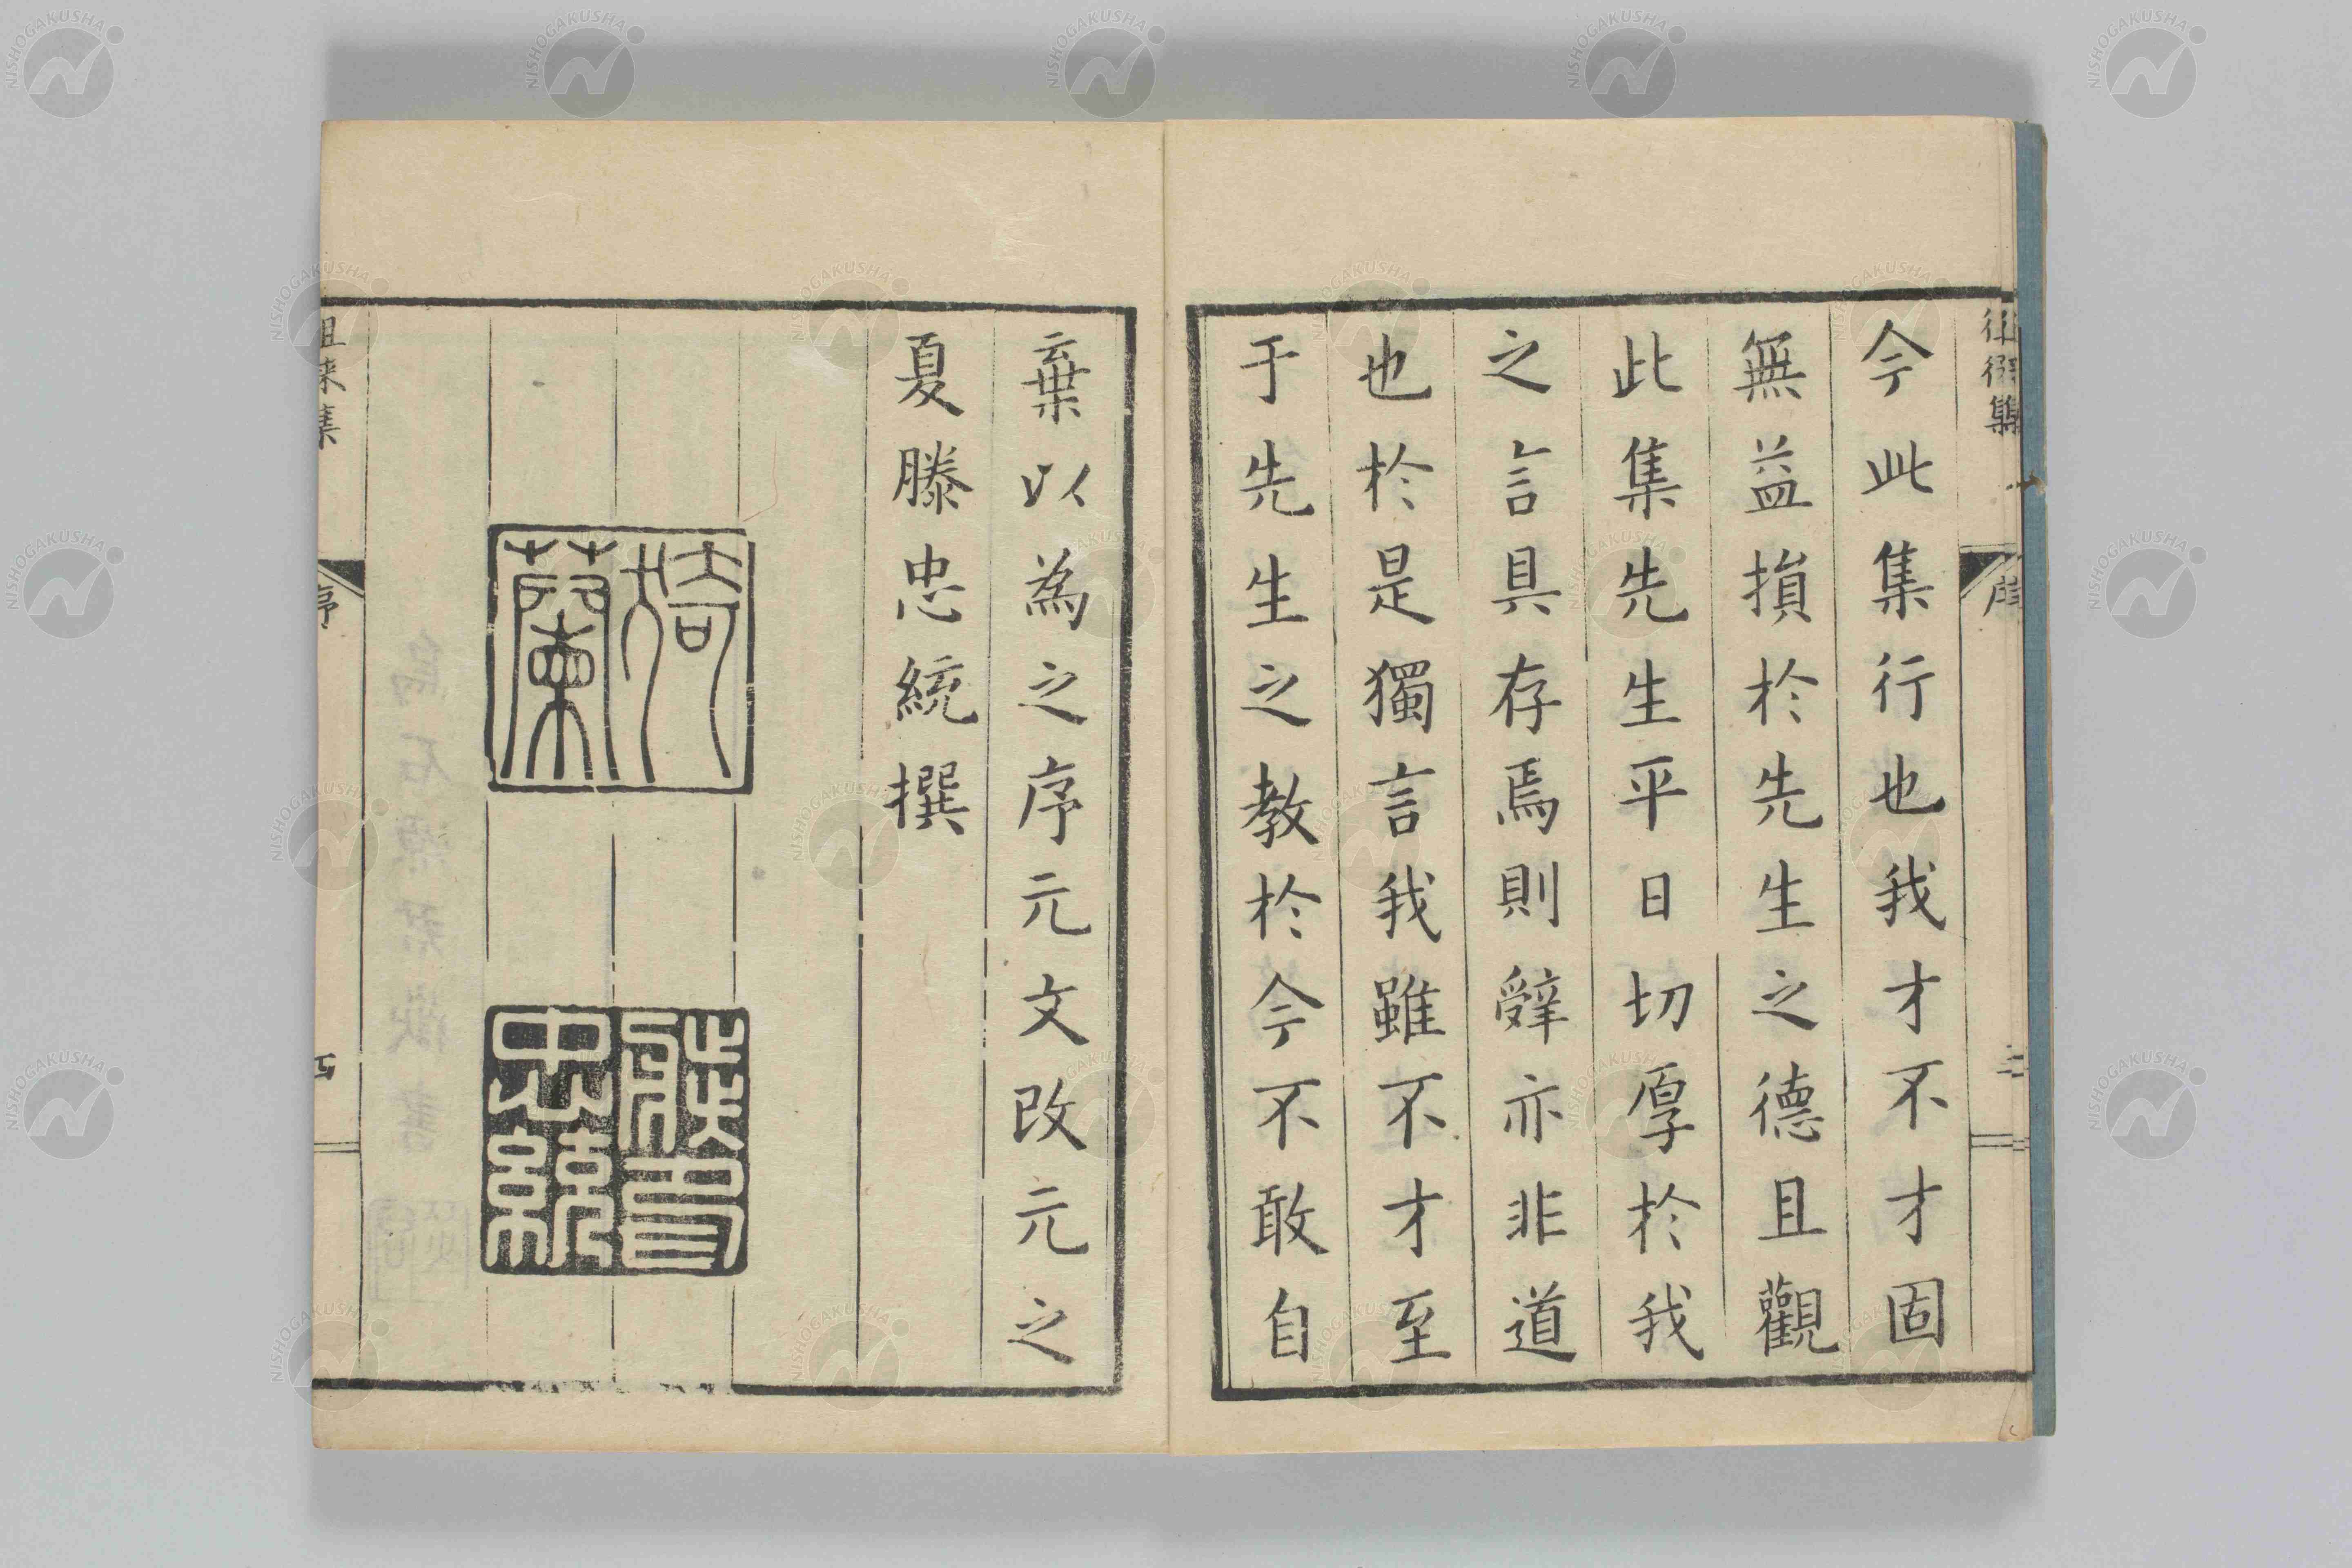 今此集行也我才不才固
無益損於先生之德且觀
此集先生平日切厚於我
之言具存焉則辤亦非道
也於是獨言我雖不才至
于先生之教於今不敢自
棄以為之序元文改元之
夏滕忠統撰
猗蘭
忠統
徂徠集
序
NISHOGAKUSHA